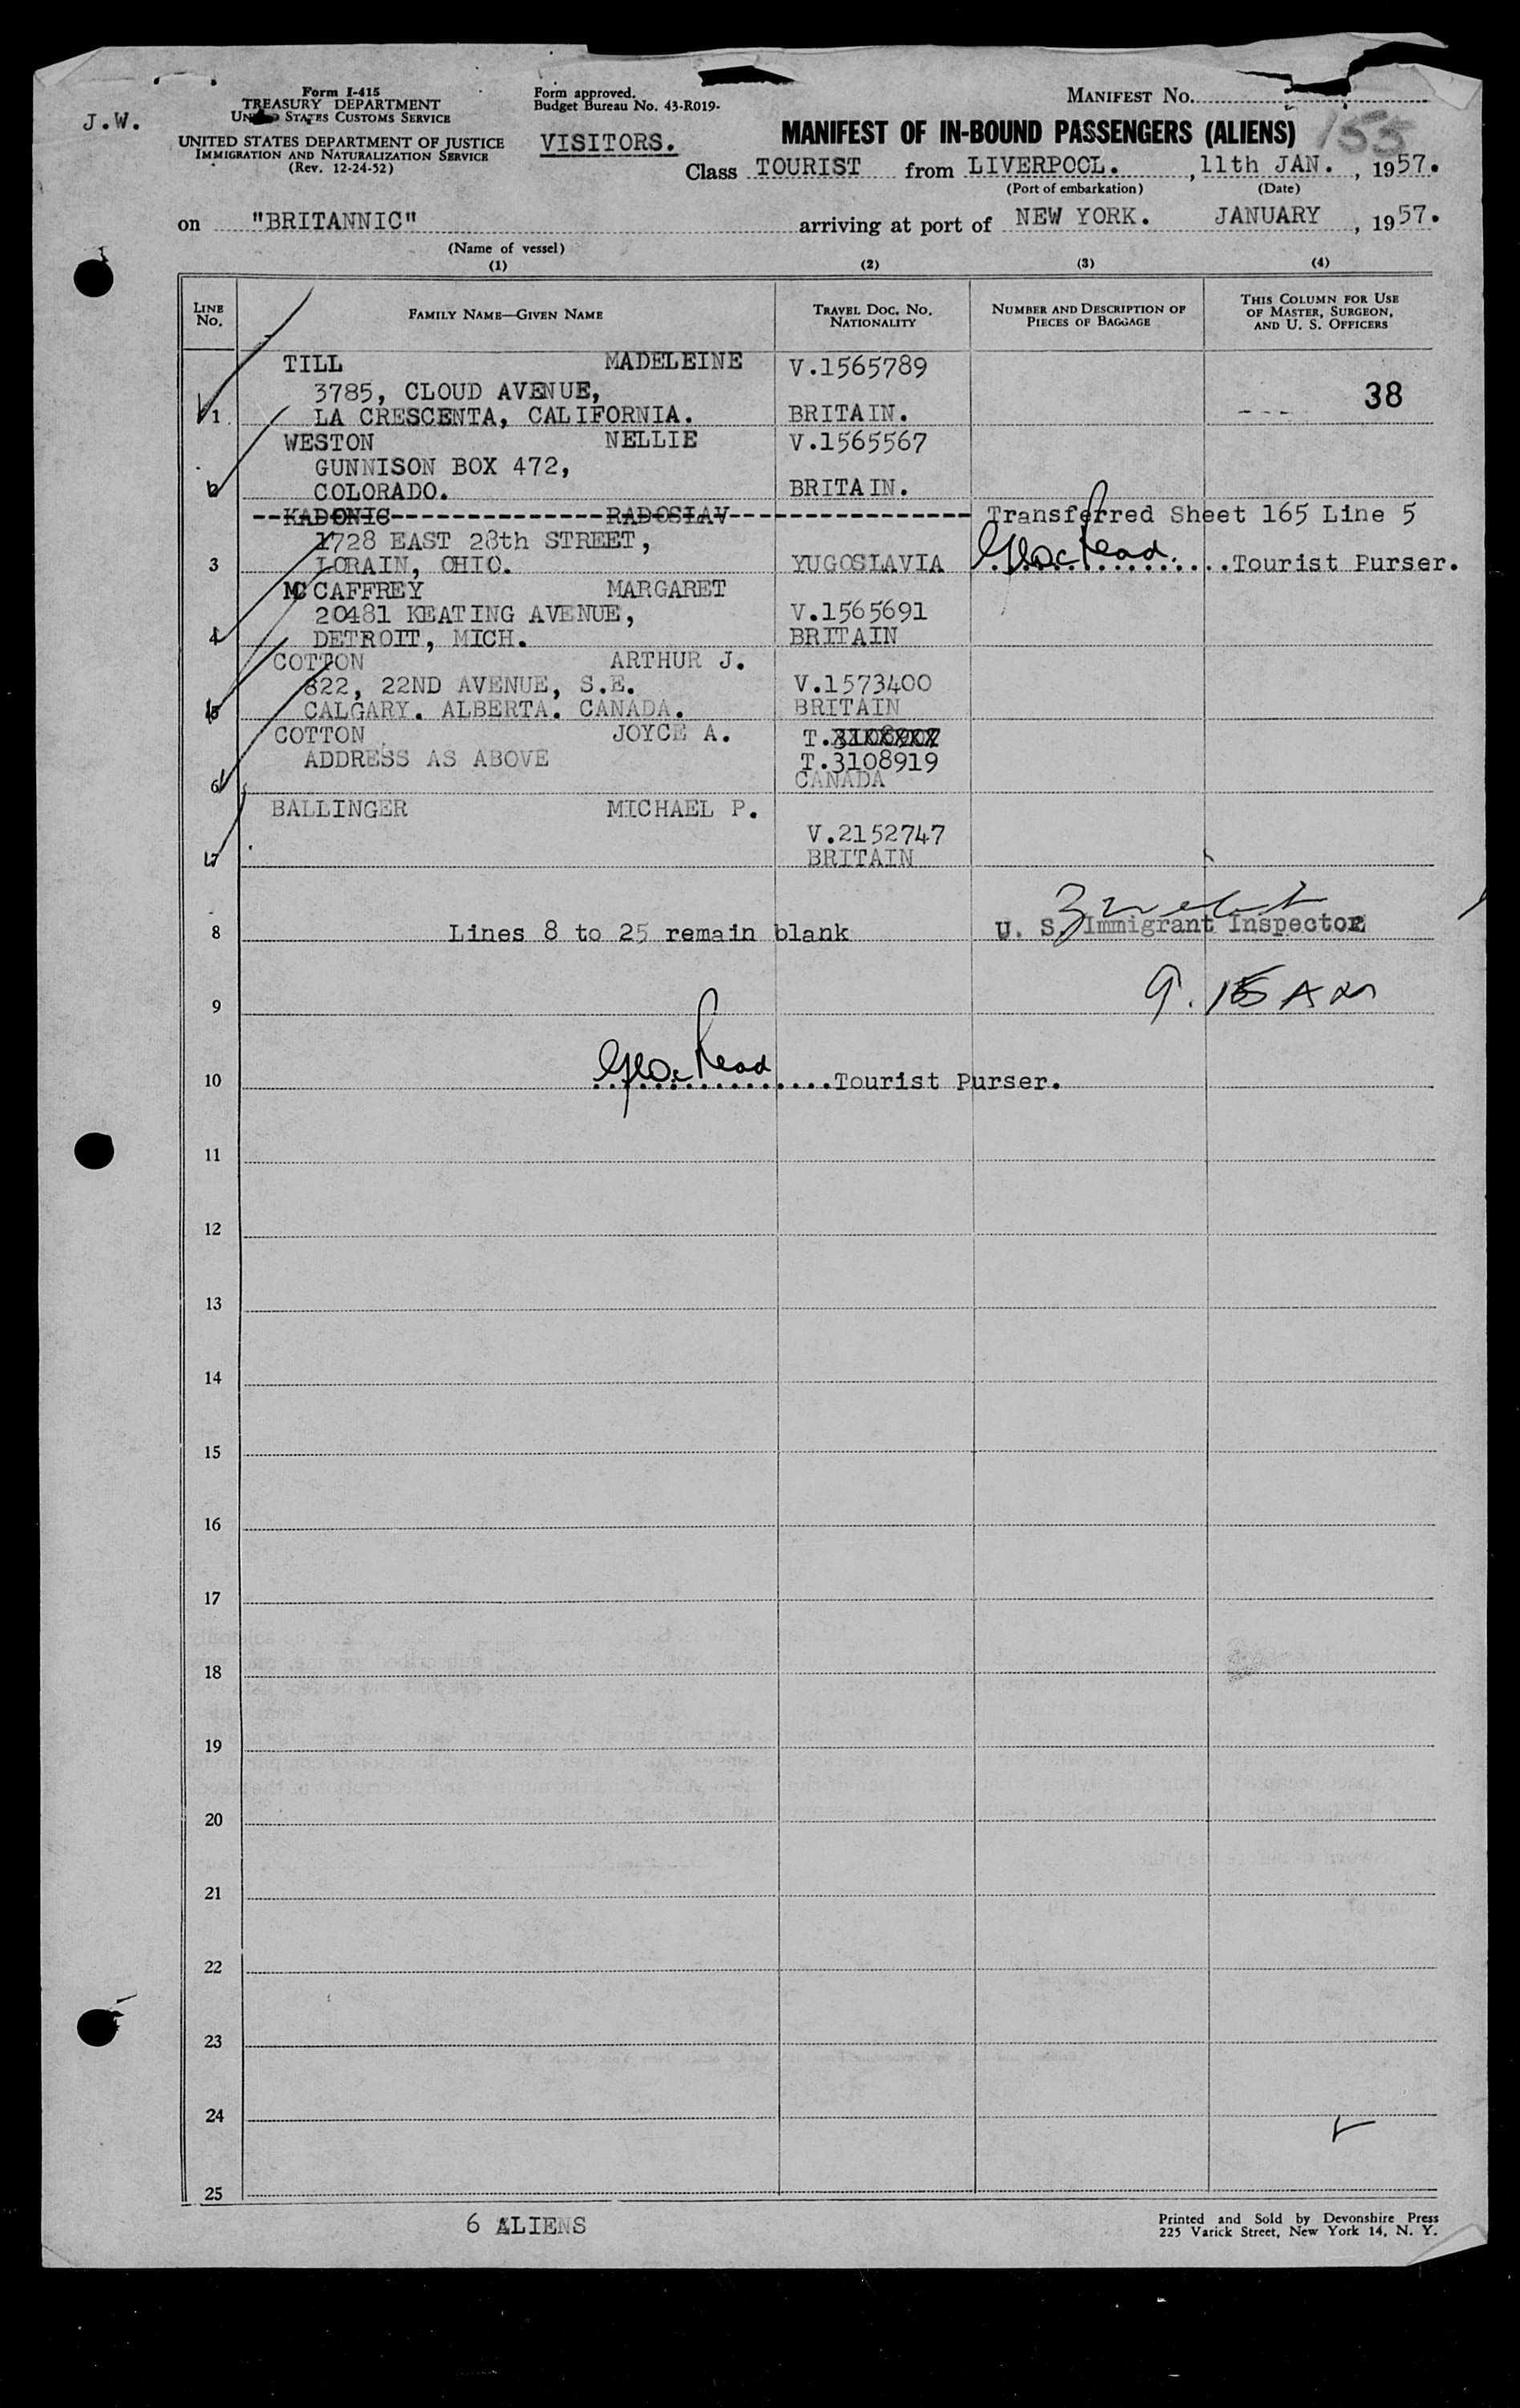 J.W.
Form I-415
TREASURY DEPARTMENT
UNITED STATES CUSTOMS SERVICE
UNITED STATES DEPARTMENT OF JUSTICE
IMMIGRATION AND NATURALIZATION SERVICE
(Rev. 12-24-52)
Form approved.
Budget Bureau No. 43-R019-
VISITORS.
MANIFEST No.
MANIFEST OF IN-BOUND PASSENGERS (ALIENS) 155
Class TOURIST from LIVERPOOL. , 11th JAN. , 1957.
(Port of embarkation) (Date)
on "BRITANNIC" arriving at port of NEW YORK. JANUARY , 1957.
(Name of vessel)
(1) (2) (3) (4)
LINE No. FAMILY NAME—GIVEN NAME TRAVEL DOC. NO. NATIONALITY NUMBER AND DESCRIPTION OF PIECES OF BAGGAGE THIS COLUMN FOR USE OF MASTER, SURGEON, AND U. S. OFFICERS
TILL MADELEINE V.1565789
3785, CLOUD AVENUE, 38
1 LA CRESCENTA, CALIFORNIA. BRITAIN.
WESTON NELLIE V.1565567
GUNNISON BOX 472,
2 COLORADO. BRITAIN.
--KADONIC--------------RADOSLAV---------------- Transferred Sheet 165 Line 5
1728 EAST 28th STREET,
3 LORAIN, OHIO. YUGOSLAVIA Geo. Read ................Tourist Purser.
MC CAFFREY MARGARET
20481 KEATING AVENUE, V.1565691
4 DETROIT, MICH. BRITAIN
COTTON ARTHUR J.
822, 22ND AVENUE, S.E. V.1573400
5 CALGARY. ALBERTA. CANADA. BRITAIN
COTTON JOYCE A. T.
ADDRESS AS ABOVE T.3108919
6 CANADA
BALLINGER MICHAEL P.
V.2152747
7 BRITAIN
8 Lines 8 to 25 remain blank U. S. Immigrant Inspector
9.15 AM
9
Geo. Read
10 ................Tourist Purser.
11
12
13
14
15
16
17
18
19
20
21
22
23
24
25
6 ALIENS
Printed and Sold by Devonshire Press
225 Varick Street, New York 14, N. Y.